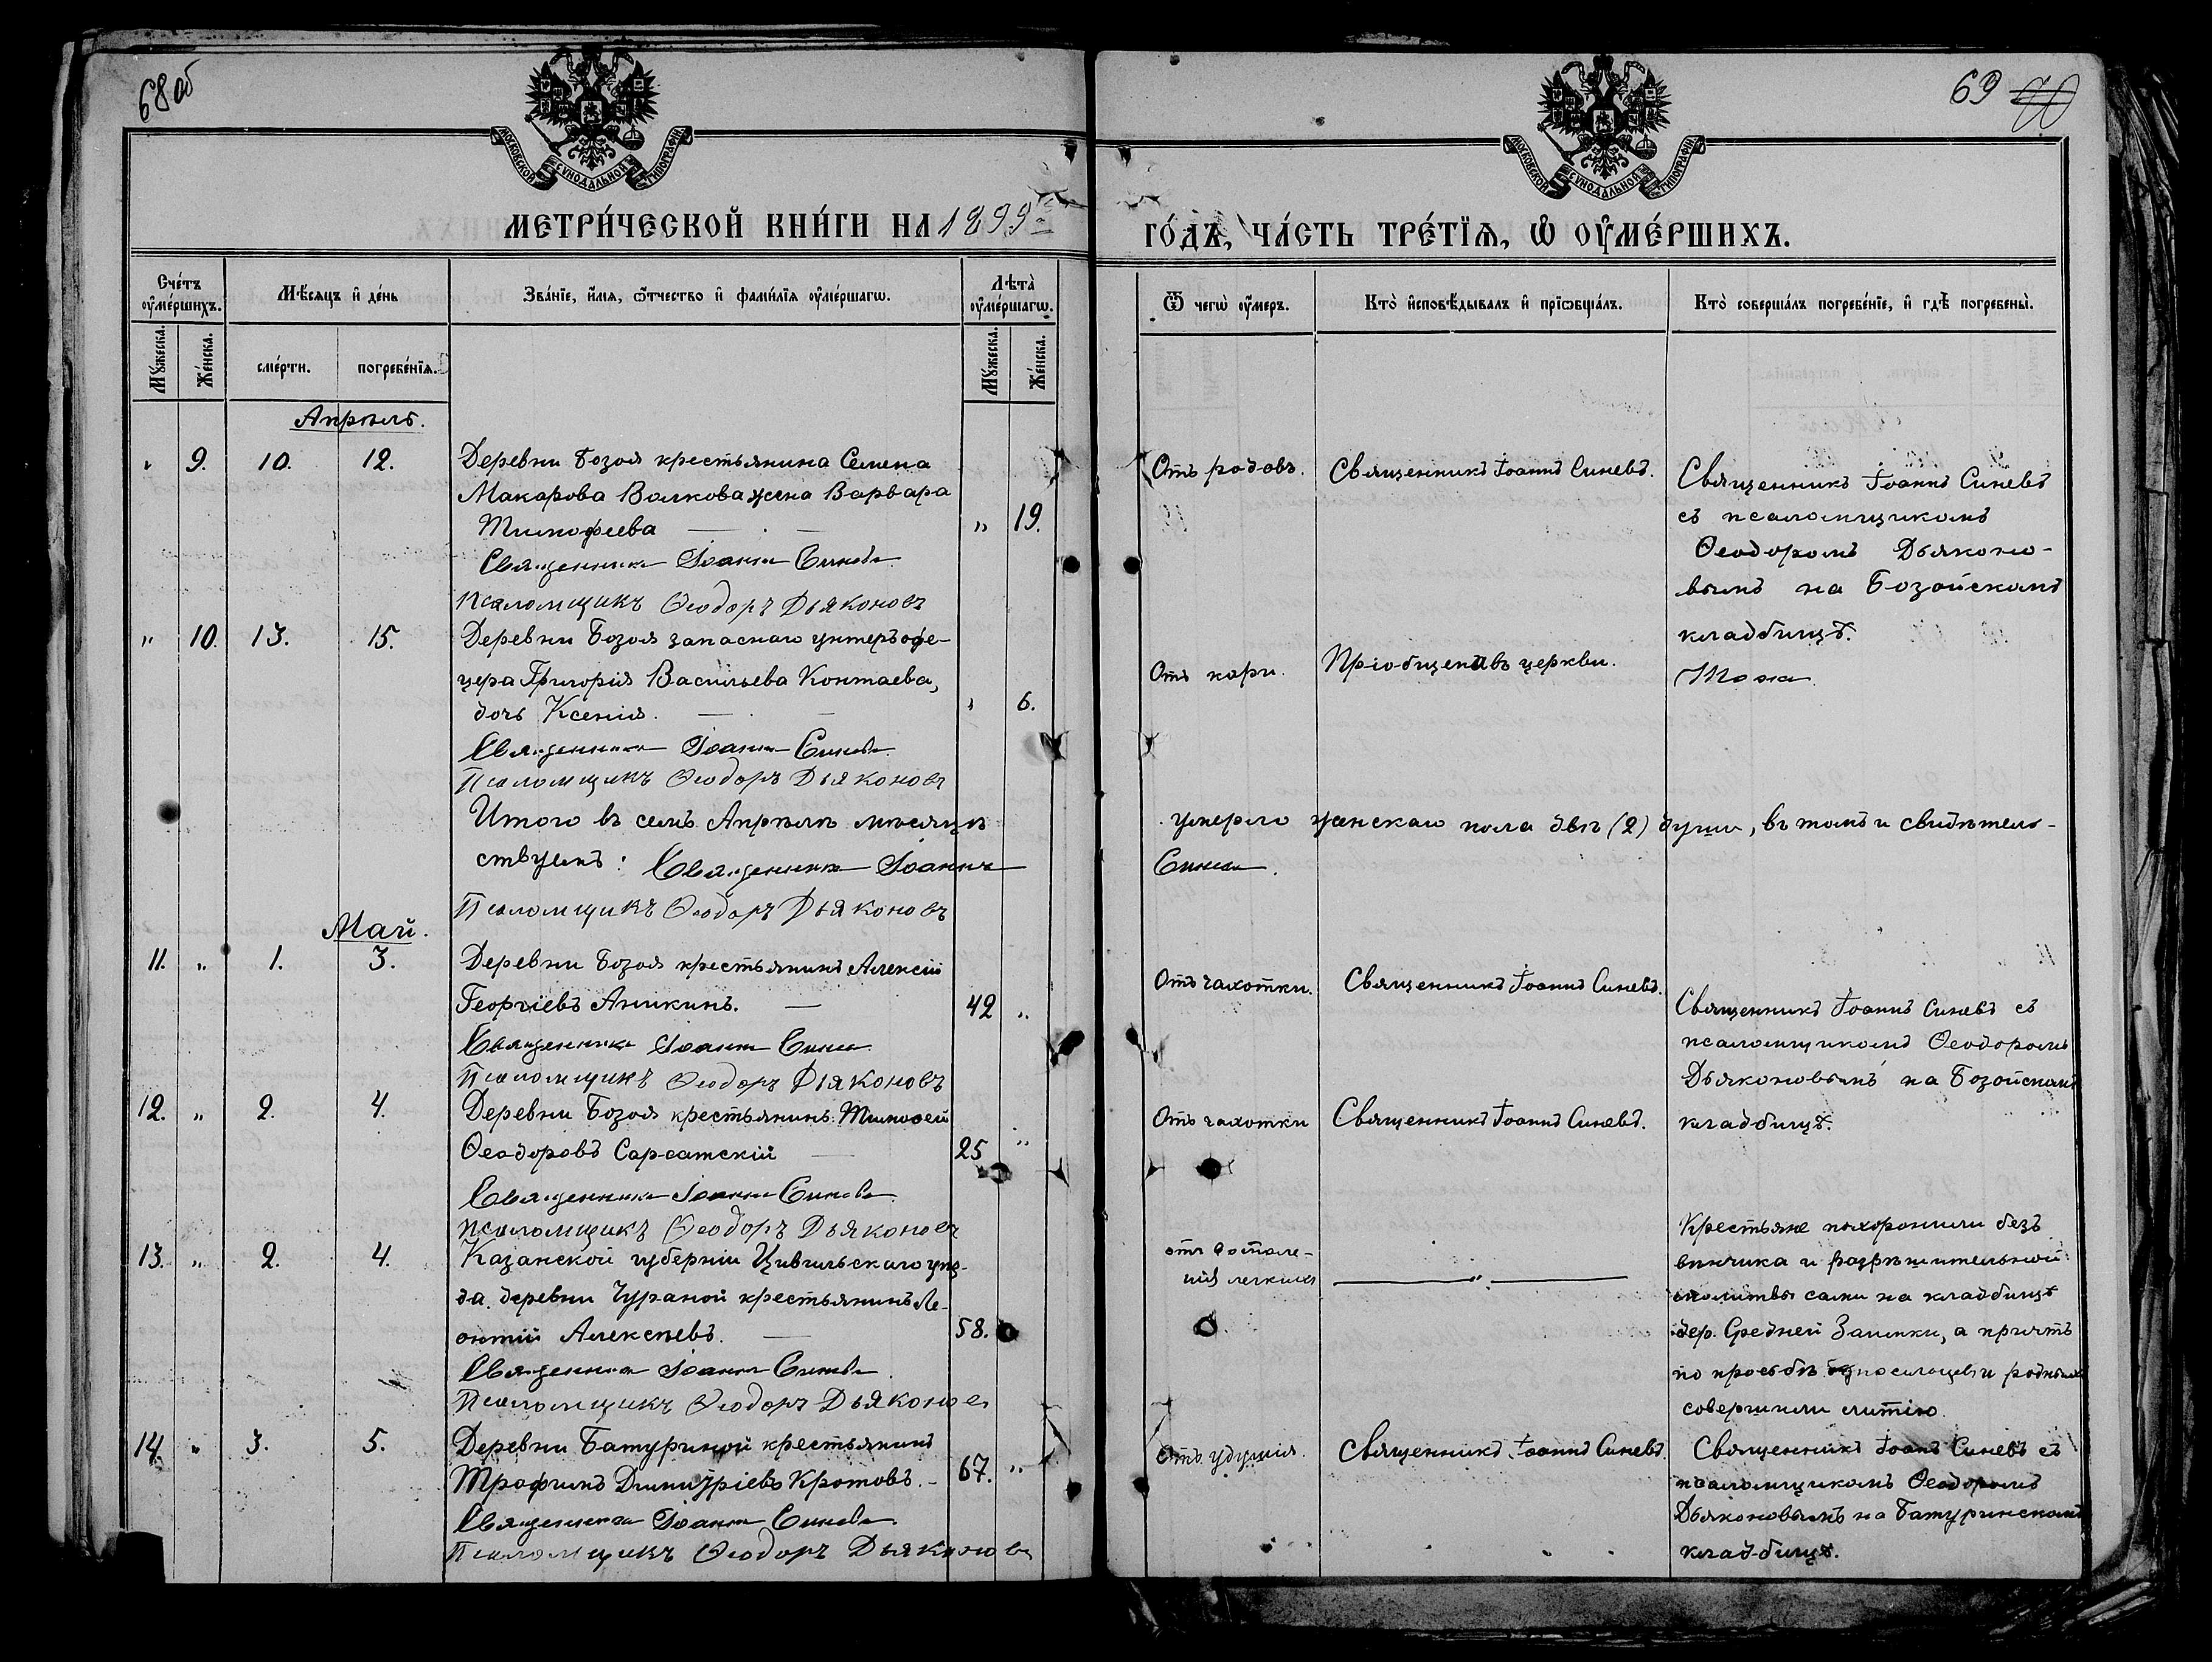 68 об
69
МОСКОВСКОЙ СѴНОДАЛЬНОЙ ТИПОГРАФІИ
МОСКОВСКОЙ СѴНОДАЛЬНОЙ ТИПОГРАФІИ
МЕТРИ́ЧЕСКОЙ КНИ́ГИ НА 1899й
ГО́ДЪ, ЧА́СТЬ ТРЕ́ТЇѦ, Ѡ҆ ОУ҆МЕ́РШИХЪ.
Сче́тъ оу҆ме́ршихъ.
Мѣ́сяцъ и҆ де́нь
Зва́нїе, и҆́мѧ, ѻ҆́тчество и҆ фами́лїѧ оу҆ме́ршагѡ.
Лѣта̀ оу҆ме́ршагѡ.
Ѿ чегѡ̀ оу҆́меръ.
Кто̀ и҆сповѣ́дывалъ и҆ прїѡбща́лъ.
Кто̀ соверша́лъ погребе́нїе, и҆ гдѣ̀ погребены̀.
Мꙋ́жеска.
Же́нска.
сме́рти.
погребе́нїѧ.
Мꙋ́жеска.
Же́нска.
Апрѣль.
" 9. 10. 12. Деревни Бозоя крестьянина Семена
Макарова Волкова жена Варвара
Тимофеева " 19.
Священникъ Іоаннъ Синевъ
Псаломщикъ Ѳеодоръ Дьяконовъ
Отъ родовъ. Священникъ Іоаннъ Синевъ.
Священникъ Іоаннъ Синевъ
съ псаломщикомъ
Ѳеодоромъ Дьяконо-
вымъ на Бозойскомъ
кладбищѣ.
" 10. 13. 15. Деревни Бозоя запаснаго унтеръ офе-
цера Григорія Васильева Контаева,
дочь Ксенія. " 6.
Священникъ Іоаннъ Синевъ
Псаломщикъ Ѳеодоръ Дьяконовъ
Отъ кори. Пріобщена въ церкви.
Тоже
Итого въ семъ Апрѣлѣ мѣсяцѣ умерло женскаго пола двѣ (2) души, въ томъ и свидѣтель-
ствуемъ: Священникъ Іоаннъ Синевъ.
Псаломщикъ Ѳеодоръ Дьяконовъ
Май.
11. " 1. 3. Деревни Бозоя крестьянинъ Алексій
Георгіевъ Аникинъ. 42 "
Священникъ Іоаннъ Синевъ
Псаломщикъ Ѳеодоръ Дьяконовъ
Отъ чахотки. Священникъ Іоаннъ Синевъ.
Священникъ Іоаннъ Синевъ съ
псаломщикомъ Ѳеодоромъ
Дьяконовымъ на Бозойскомъ
кладбищѣ.
12. " 2. 4. Деревни Бозоя крестьянинъ Тимоѳей
Ѳеодоровъ Сарсатскій 25 "
Священникъ Іоаннъ Синевъ
Псаломщикъ Ѳеодоръ Дьяконовъ
Отъ чахотки Священникъ Іоаннъ Синевъ.
13. " 2. 4. Казанской губерніи Цивильскаго уѣз-
да деревни Чураной крестьянинъ Ле-
онтій Алексѣевъ. 58.
Священникъ Іоаннъ Синевъ
Псаломщикъ Ѳеодоръ Дьяконовъ
отъ воспале-
нія легкихъ "
Крестьяне похоронили безъ
вѣнчика и разрѣшительной
молитвы сами на кладбищѣ
дер. Средней Заимки, а причтъ
по просьбѣ односельцевъ и родныхъ
совершили литію.
14. " 3. 5. Деревни Батуриной крестьянинъ
Трофимъ Димитріевъ Кротовъ. 67. "
Священникъ Іоаннъ Синевъ
Псаломщикъ Ѳеодоръ Дьяконовъ
Отъ удушія. Священникъ Іоаннъ Синевъ
Священникъ Іоаннъ Синевъ съ
псаломщикомъ Ѳеодоромъ
Дьяконовымъ на Батуринскомъ
кладбищѣ.